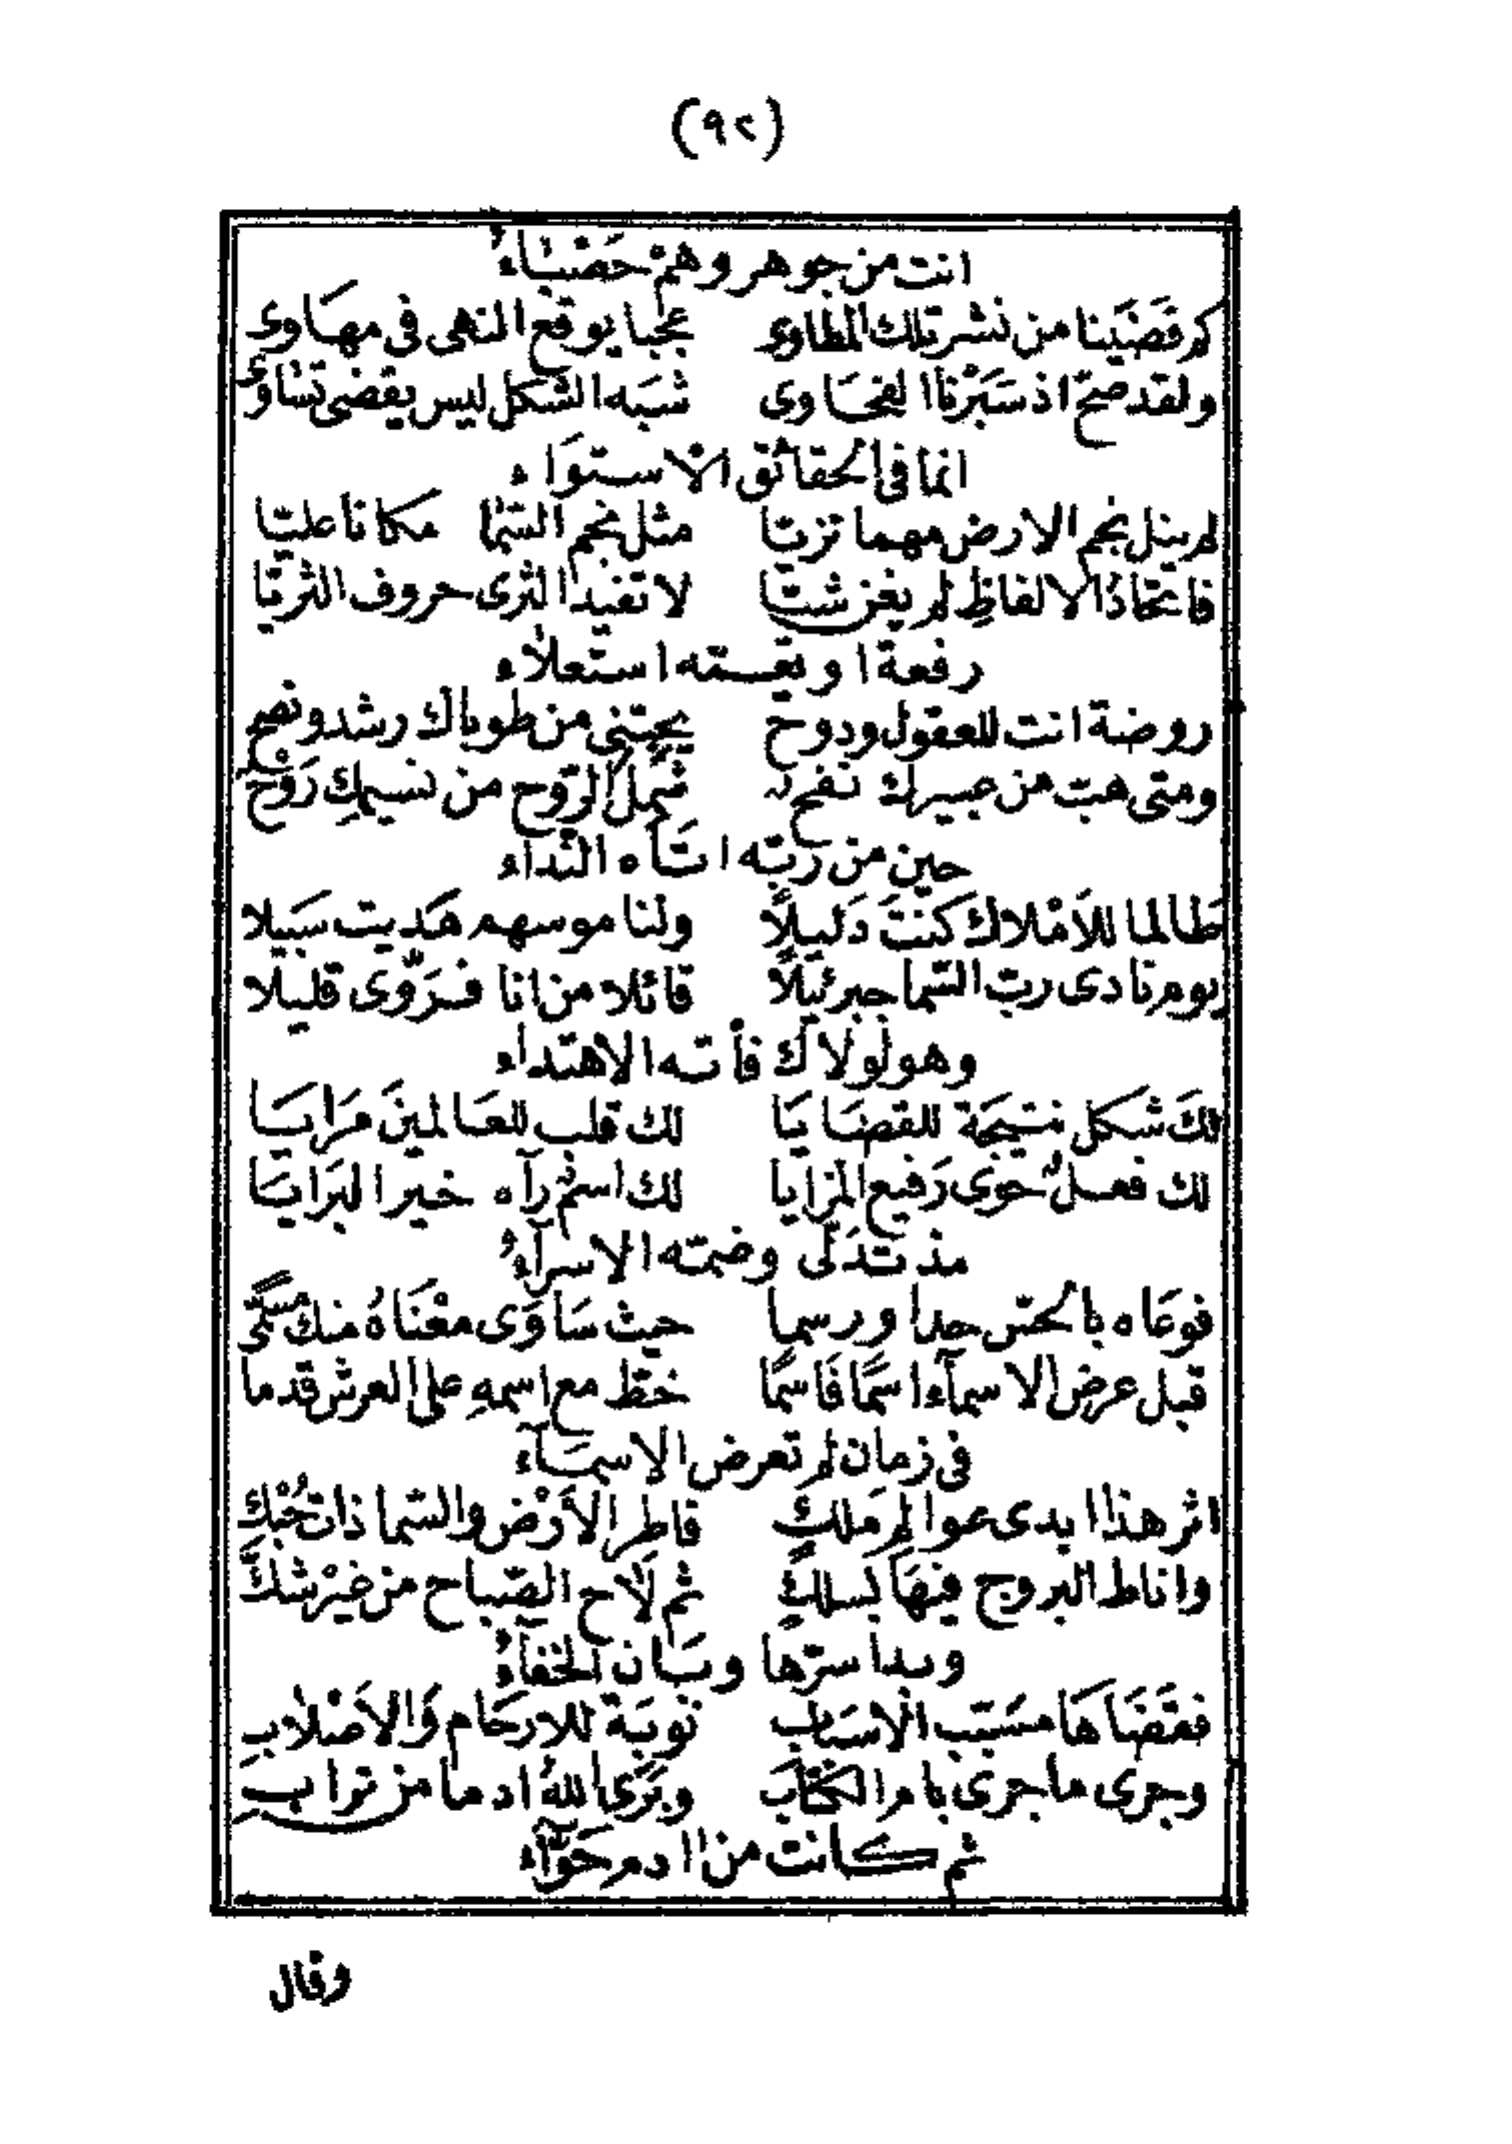 (٩٢)
انت من جوهر وهمْ حَصْبَاءُ
كم قَضَيْنا من نشر تلك المطاوى عجبا يوقع النهى فى مهَاوى
ولقد صحّ اذ سَبَرْنا الفحَاوى شبَه الشكل ليس يقضى تسَاوى
انما فى الحقائق الاستوَاء
لم ينل نجم الارض مهما تزيّا مثل نجم السّما مكانا عليّا
فاتحَادُ الالفاظِ لم يغن شيّا لا تفيد الثرى حروف الثريّا
رفعة او يعــته استعلاء
روضة انت للعقول ودوح يجتنى من طوباك رشد ونصح
ومتى هبّ من عبيرك نفحٌ شمل الرّوح من نسيمكِ رَوْحٌ
حين من ربّه اتَاه النّداء
طَالما للاَمْلاك كنتَ دَليلًا ولنا موسهم هَديت سَبيلا
يوم نادى ربّ السّما جبرئيلًا قائلا من انا فــرَوّى قليلا
وهو لولاك فأته الاهتداء
لكَ شكل نتيجَة للقضَايَا لك قلب للعَالمينَ مَرايَـا
لك فعـلٌ حوى رَفيع المزايا لك اسمٌ رآه خير البَرايَـا
مذ تَدَلّى وضمّته الاسرآءُ
فوعَاه بالحسّ حدا ورسما حيث سَاوَى معْنَاهُ منك مسَمّى
قبل عرض الاسمآء اسمًا فَاسمًا خطّ مع اسمهِ على العرش قدما
فى زمان لم تعرض الاسمَآء
اثر هذا ابدى عوالم مَلكٍ فاطر الأَرْض والسّما ذات حُبْكِ
واناط البروج فيهَا كَسلكٍ ثم لاَح الصّباح من غيْر شكٍّ
وبدا سرّها وبَان الخفآءُ
فقَضَاهَا مسَبّب الاسبَاب نوبَة للارحَام وَالاَصْلابِ
وجرى ما جرى بام الكتَاب وبَرَى اللهُ ادما من تراب
ثم كانت من ادم حَوّآء
وقال